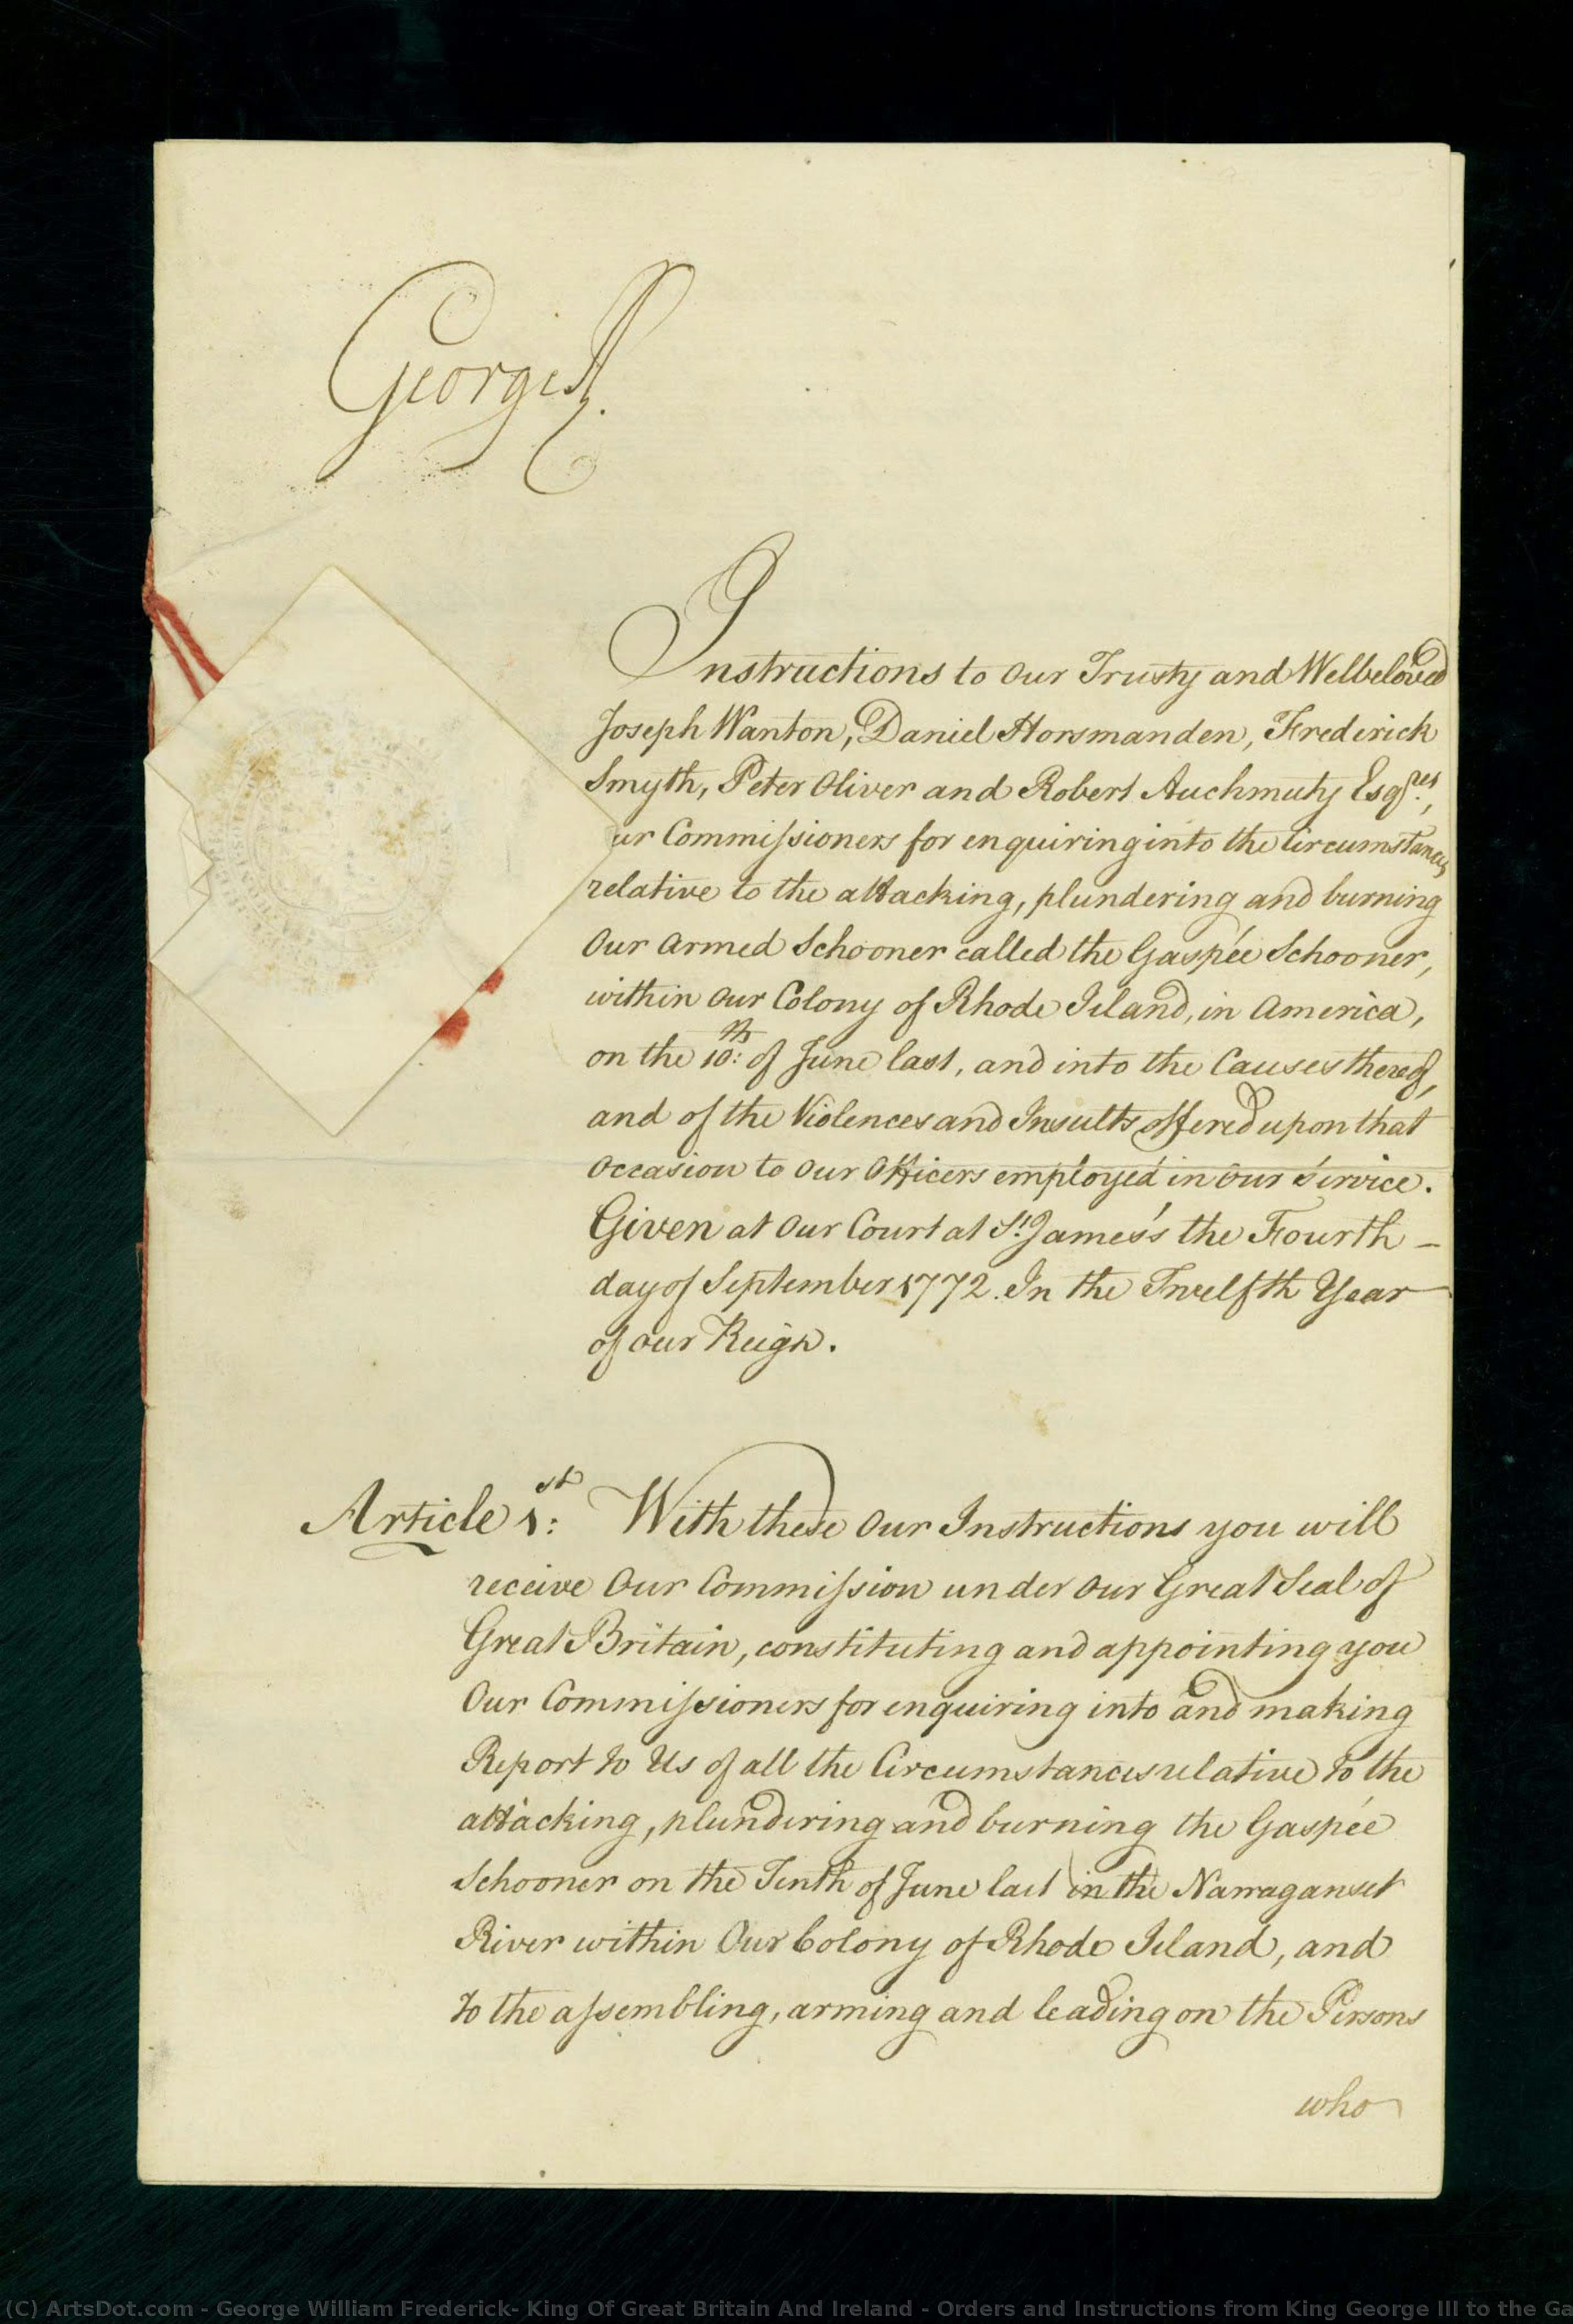 George R.
Instructions to Our Trusty and Welbeloved
Joseph Wanton, Daniel Horsmanden, Frederick
Smyth, Peter Oliver and Robert Auchmuty Esqres.,
ur Commiſsioners for enquiring into the Circumstances
relative to the attacking, plundering and burning
Our Armed Schooner called the Gaspée Schooner,
within Our Colony of Rhode Island, in America,
on the 10th: of June last, and into the Causes thereof,
and of the Violences and Insults offered upon that
Occasion to Our Officers employed in Our Service.
Given at Our Court at St. James's the Fourth –
day of September 1772. In the Twelfth Year
of our Reign.
Article 1st: With these Our Instructions you will
receive Our Commiſsion under Our Great Seal of
Great Britain, constituting and appointing you
Our Commiſsioners for enquiring into and making
Report to Us of all the Circumstances relative to the
attacking, plundering and burning the Gaspée
Schooner on the Tenth of June last in the Narraganset
River within Our Colony of Rhode Island, and
to the aſsembling, arming and leading on the Persons
who
(C) ArtsDot.com - George William Frederick- King Of Great Britain And Ireland - Orders and Instructions from King George III to the Ga